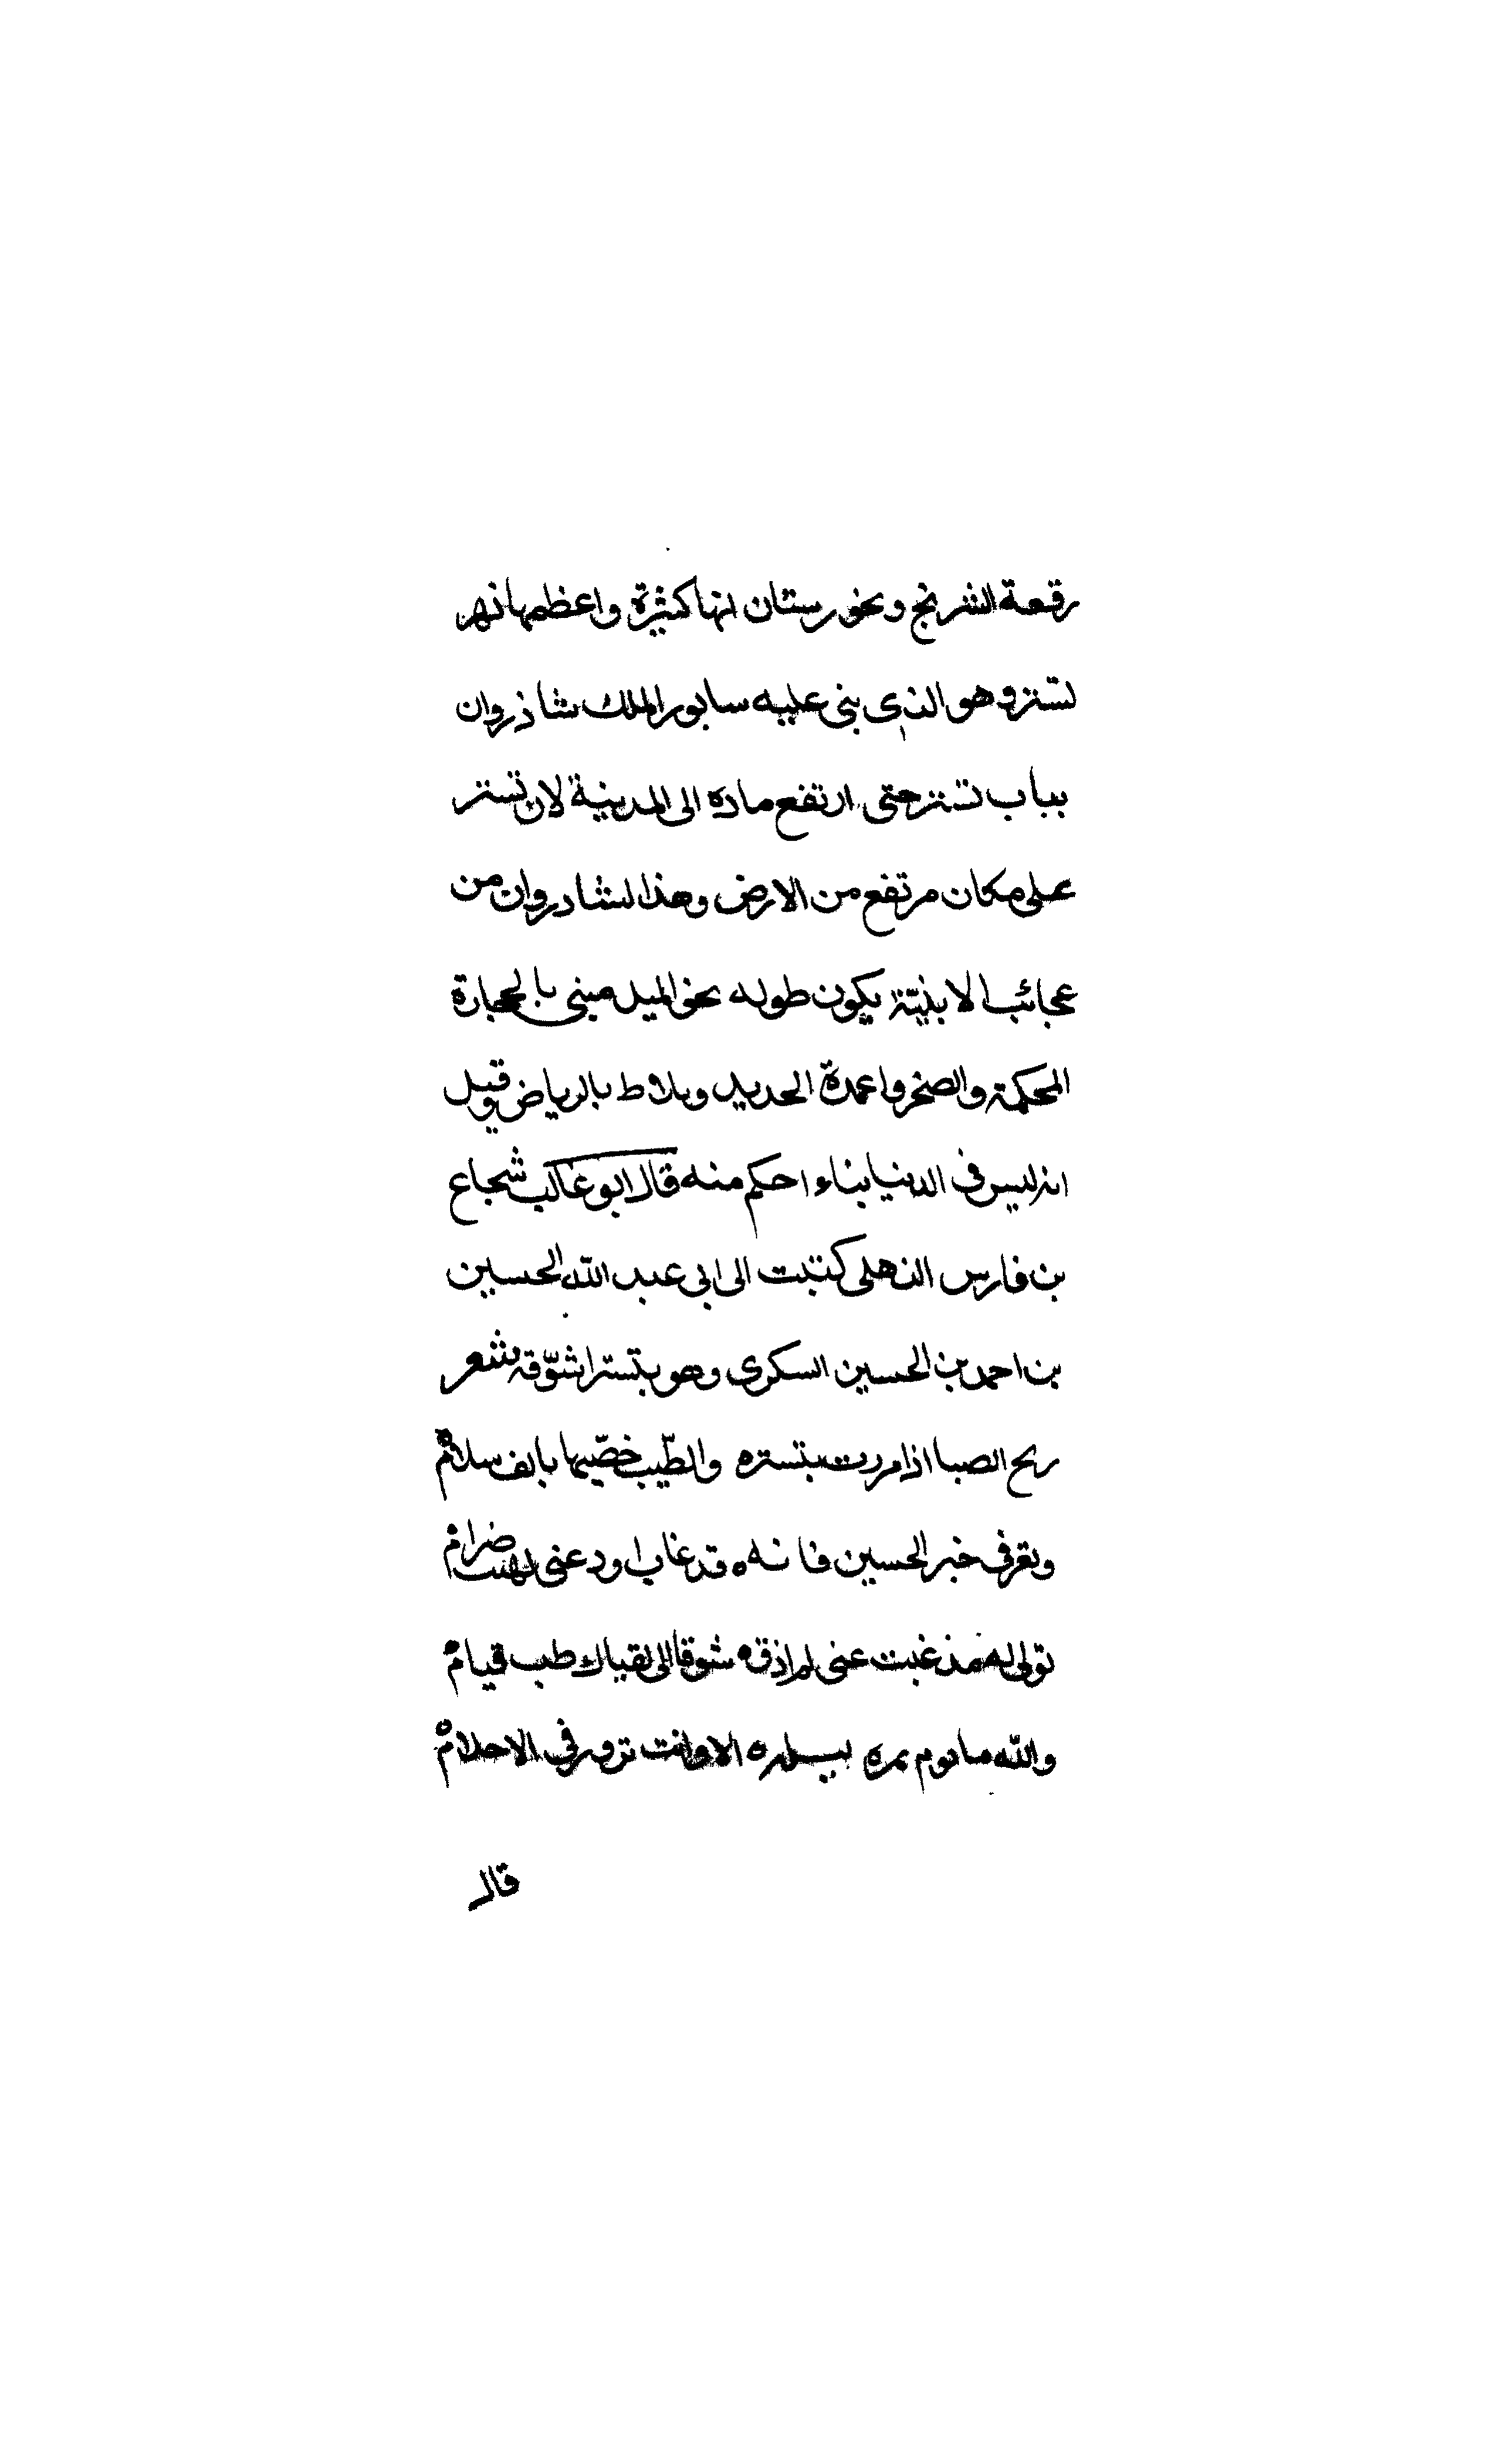 رقعة الشرنج وبخورستان انها كثيرة واعظمها نهر
تستر وهو الذي بنى عليه سابور الملك شاذروان
بباب تستر حتى ارتفع ماده الى المدينة لان تستر
على مكان مرتفع من الارض وهذا الشادروان من
عجائب الابنيّة يكون طوله نحو الميل مبنى بالحجارة
المحكمة والصخر واعمدة الحديد وبلاط بالرياض وقيل
انه ليس في الدنيا بناء احكم منه قال ابو غالب شجاع
بن فارس الذهلى كتبت الى ابي عبد الله الحسين
بن احمد بن الحسين السكرى وهو بتستر اشوّقه شعر
ريح الصبا اذا مررت بتستره والطّيب خصّيها بالف سلام
وتعرفي خبر الحسين فانه قد غاب اودعنى لهيب ضرام
قولى له مذ غبت عنى لم اذق شوقا الى لقياك طب قيام
والله ما يوم يمره ليله الا وانت تزور في الاحلام
قال